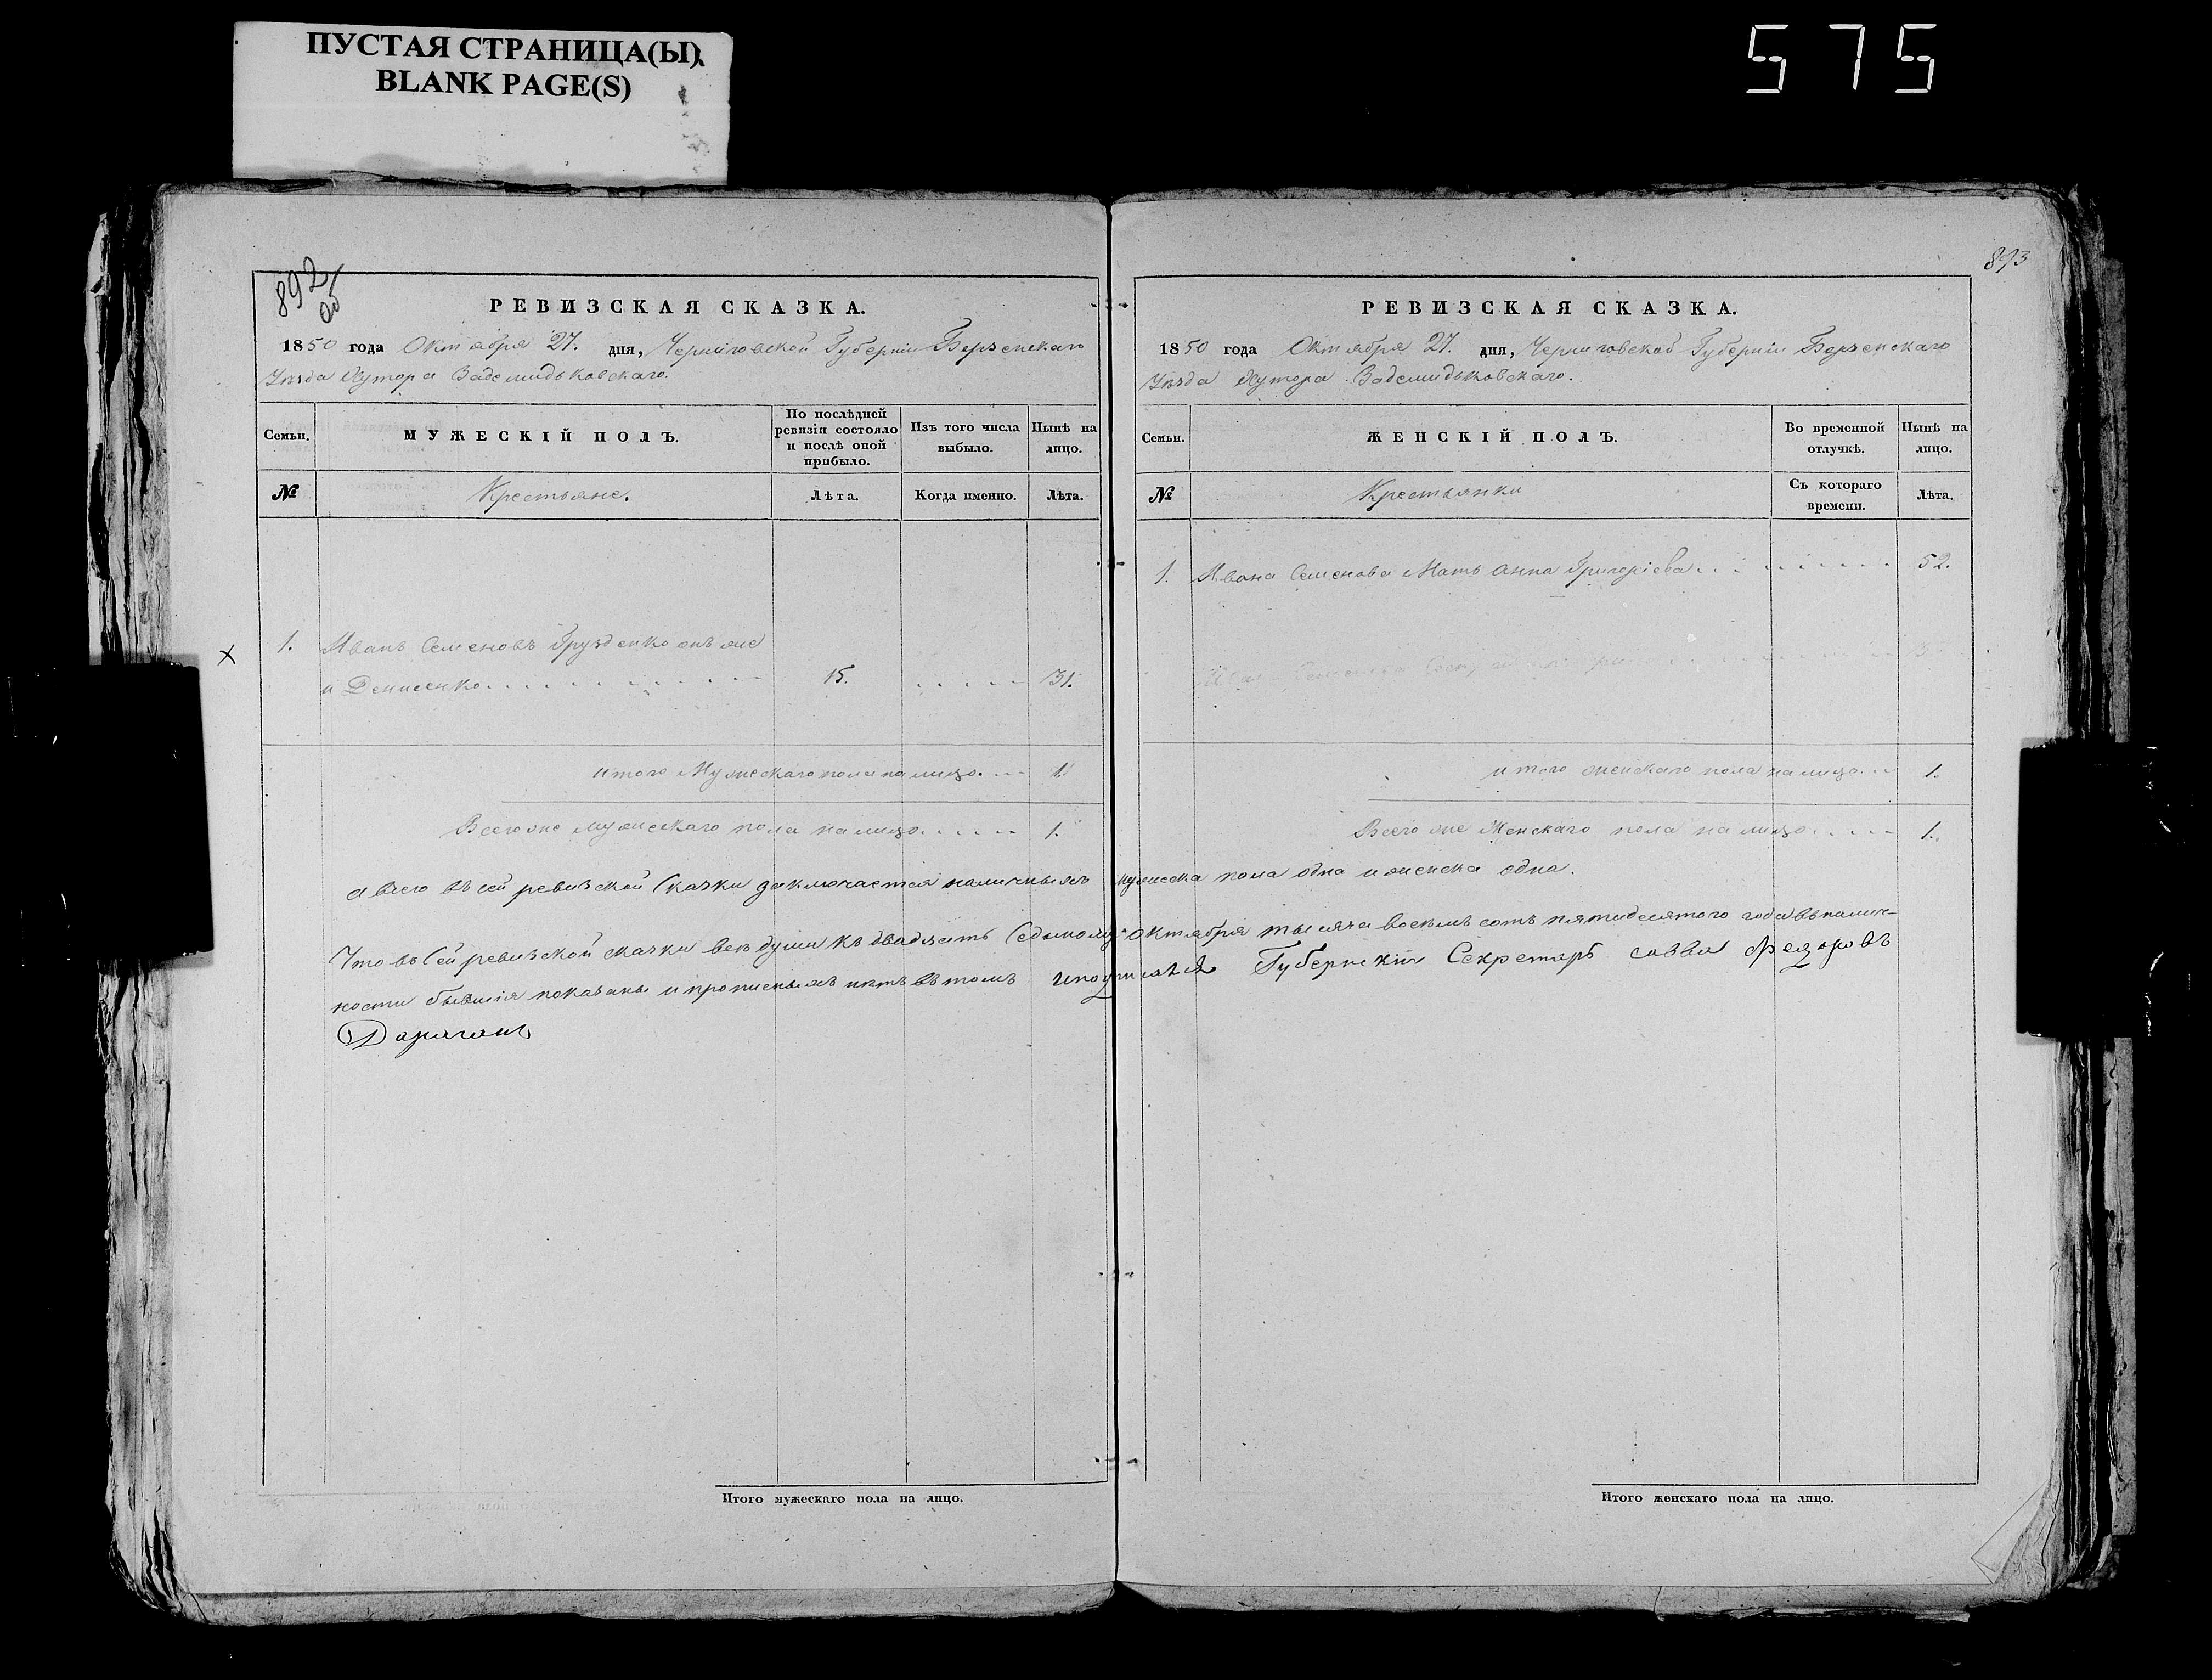 ПУСТАЯ СТРАНИЦА(Ы)
BLANK PAGE(S)
575
892
об
РЕВИЗСКАЯ СКАЗКА.
1850 года Октября 27. дня, Черниговской Губерніи Борзенскаго
Уѣзда Хутора Задемидьковскаго.
Семьи.
МУЖЕСКІЙ ПОЛЪ.
По послѣдней ревизіи состояло и послѣ оной прибыло.
Изъ того числа выбыло.
Нынѣ на лицо.
№
Крестьяне.
Лѣта.
Когда именно.
Лѣта.
1. Иванъ Семеновъ Грузденко онъ же
и Денисенко 15. 31.
итого Мужескаго пола на лицо 1.
Всего же мужескаго пола на лицо 1.
893
РЕВИЗСКАЯ СКАЗКА.
1850 года Октября 27. дня, Черниговской Губерніи Борзенскаго
Уѣзда Хутора Задемидьковскаго.
Семьи.
ЖЕНСКІЙ ПОЛЪ.
Во временной отлучкѣ.
Нынѣ на лицо.
№
Крестьянки
Съ котораго времени.
Лѣта.
1. Ивана Семенова Мать Анна Григоріева 52.
итого женскаго пола на лицо 1.
Всего же Женскаго пола на лицо 1.
а всего въ сей ревизской Сказки заключается наличныхъ мужеска пола одна и женска одна.
Что въ Сей ревизской сказки все души къ двадцать Седьмому Октября тысяча восемь сотъ пятидесятого года въ налич-
ности бывшія показаны и прописныхъ нѣтъ въ томъ и подписался Губернскій Секретарь Савва Федоровъ
Дараганъ
Итого мужескаго пола на лицо.
Итого женскаго пола на лицо.